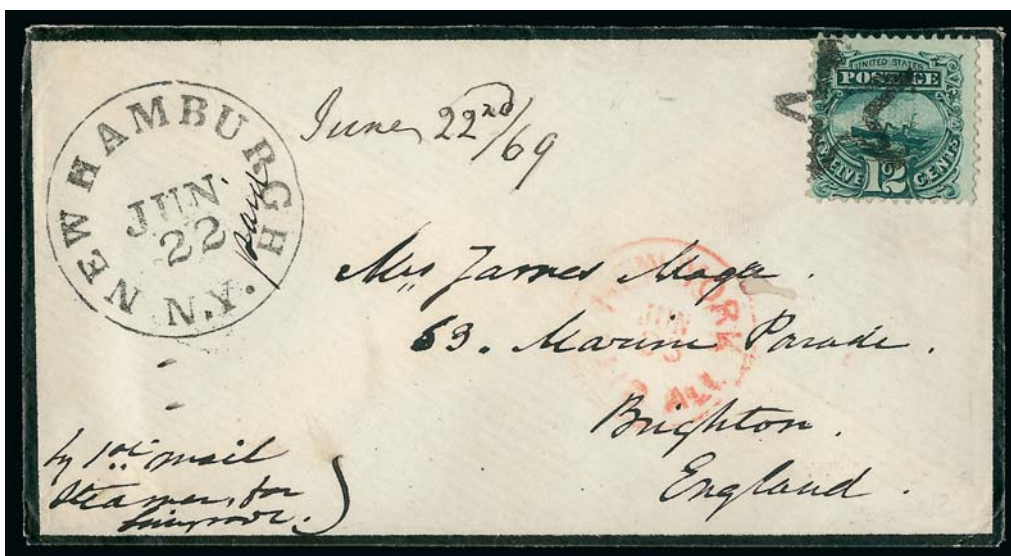 NEW HAMBURGH
N.Y.
JUN.
22
paid
June 22nd/69
UNITED STATES
POSTAGE
TWELVE CENTS
12
Mrs James Magee.
63. Marine Parade.
Brighton.
England.
NEW YORK
JUN
PAID ALL
by 1st mail
Steamer, for
Liverpool.)